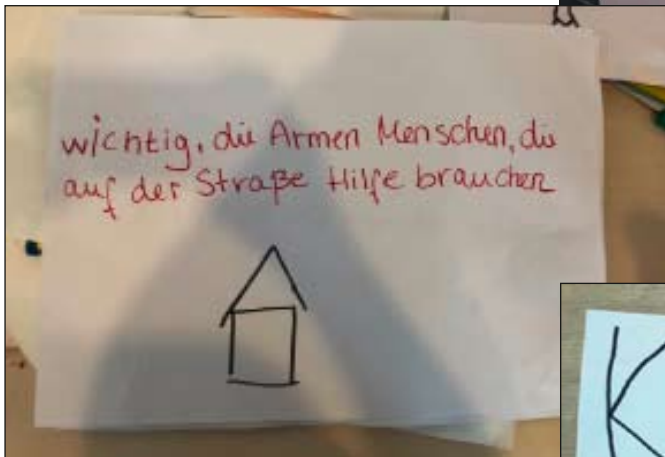 wichtig, die Armen Menschen, die
auf der Straße Hilfe brauchen